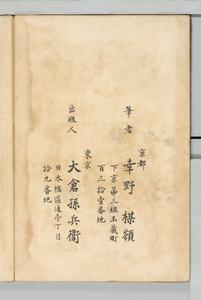 筆者
京都
幸野楳嶺
下京第三組玉蔵町
百三拾壹番地
出版人
東京
大倉孫兵衛
日本橋區通壱丁目
拾九番地